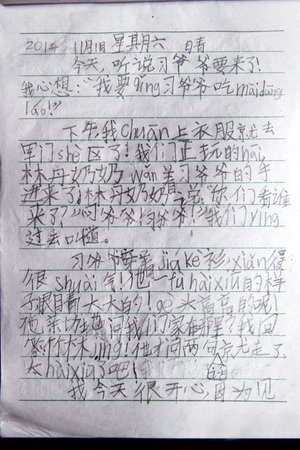 2014 11月1日 星其月六 日青
今天,听说习爷爷要来了!
我心想:“我要qǐng习爷爷吃maidāng
láo!”
下午我chuān上衣服京尤去
军门shè区了!我们正玩的hāi,
林丹奶奶wǎn着习爷爷的手
进来了!林丹奶奶说:“你们看谁
来了?”“习爷爷!习爷爷!”我们yíng
过去叫道。
习爷爷穿着jiákè衫xiǎn得
很shuài气!他一fu hǎixiá的样
子眼睛大大的!go头高高的呢!
他亲切地问我们家住哪里?我回
答竹林jìng!他才问两句京尤走了
太hǎixiá了吧!
我今天很开心,因为见